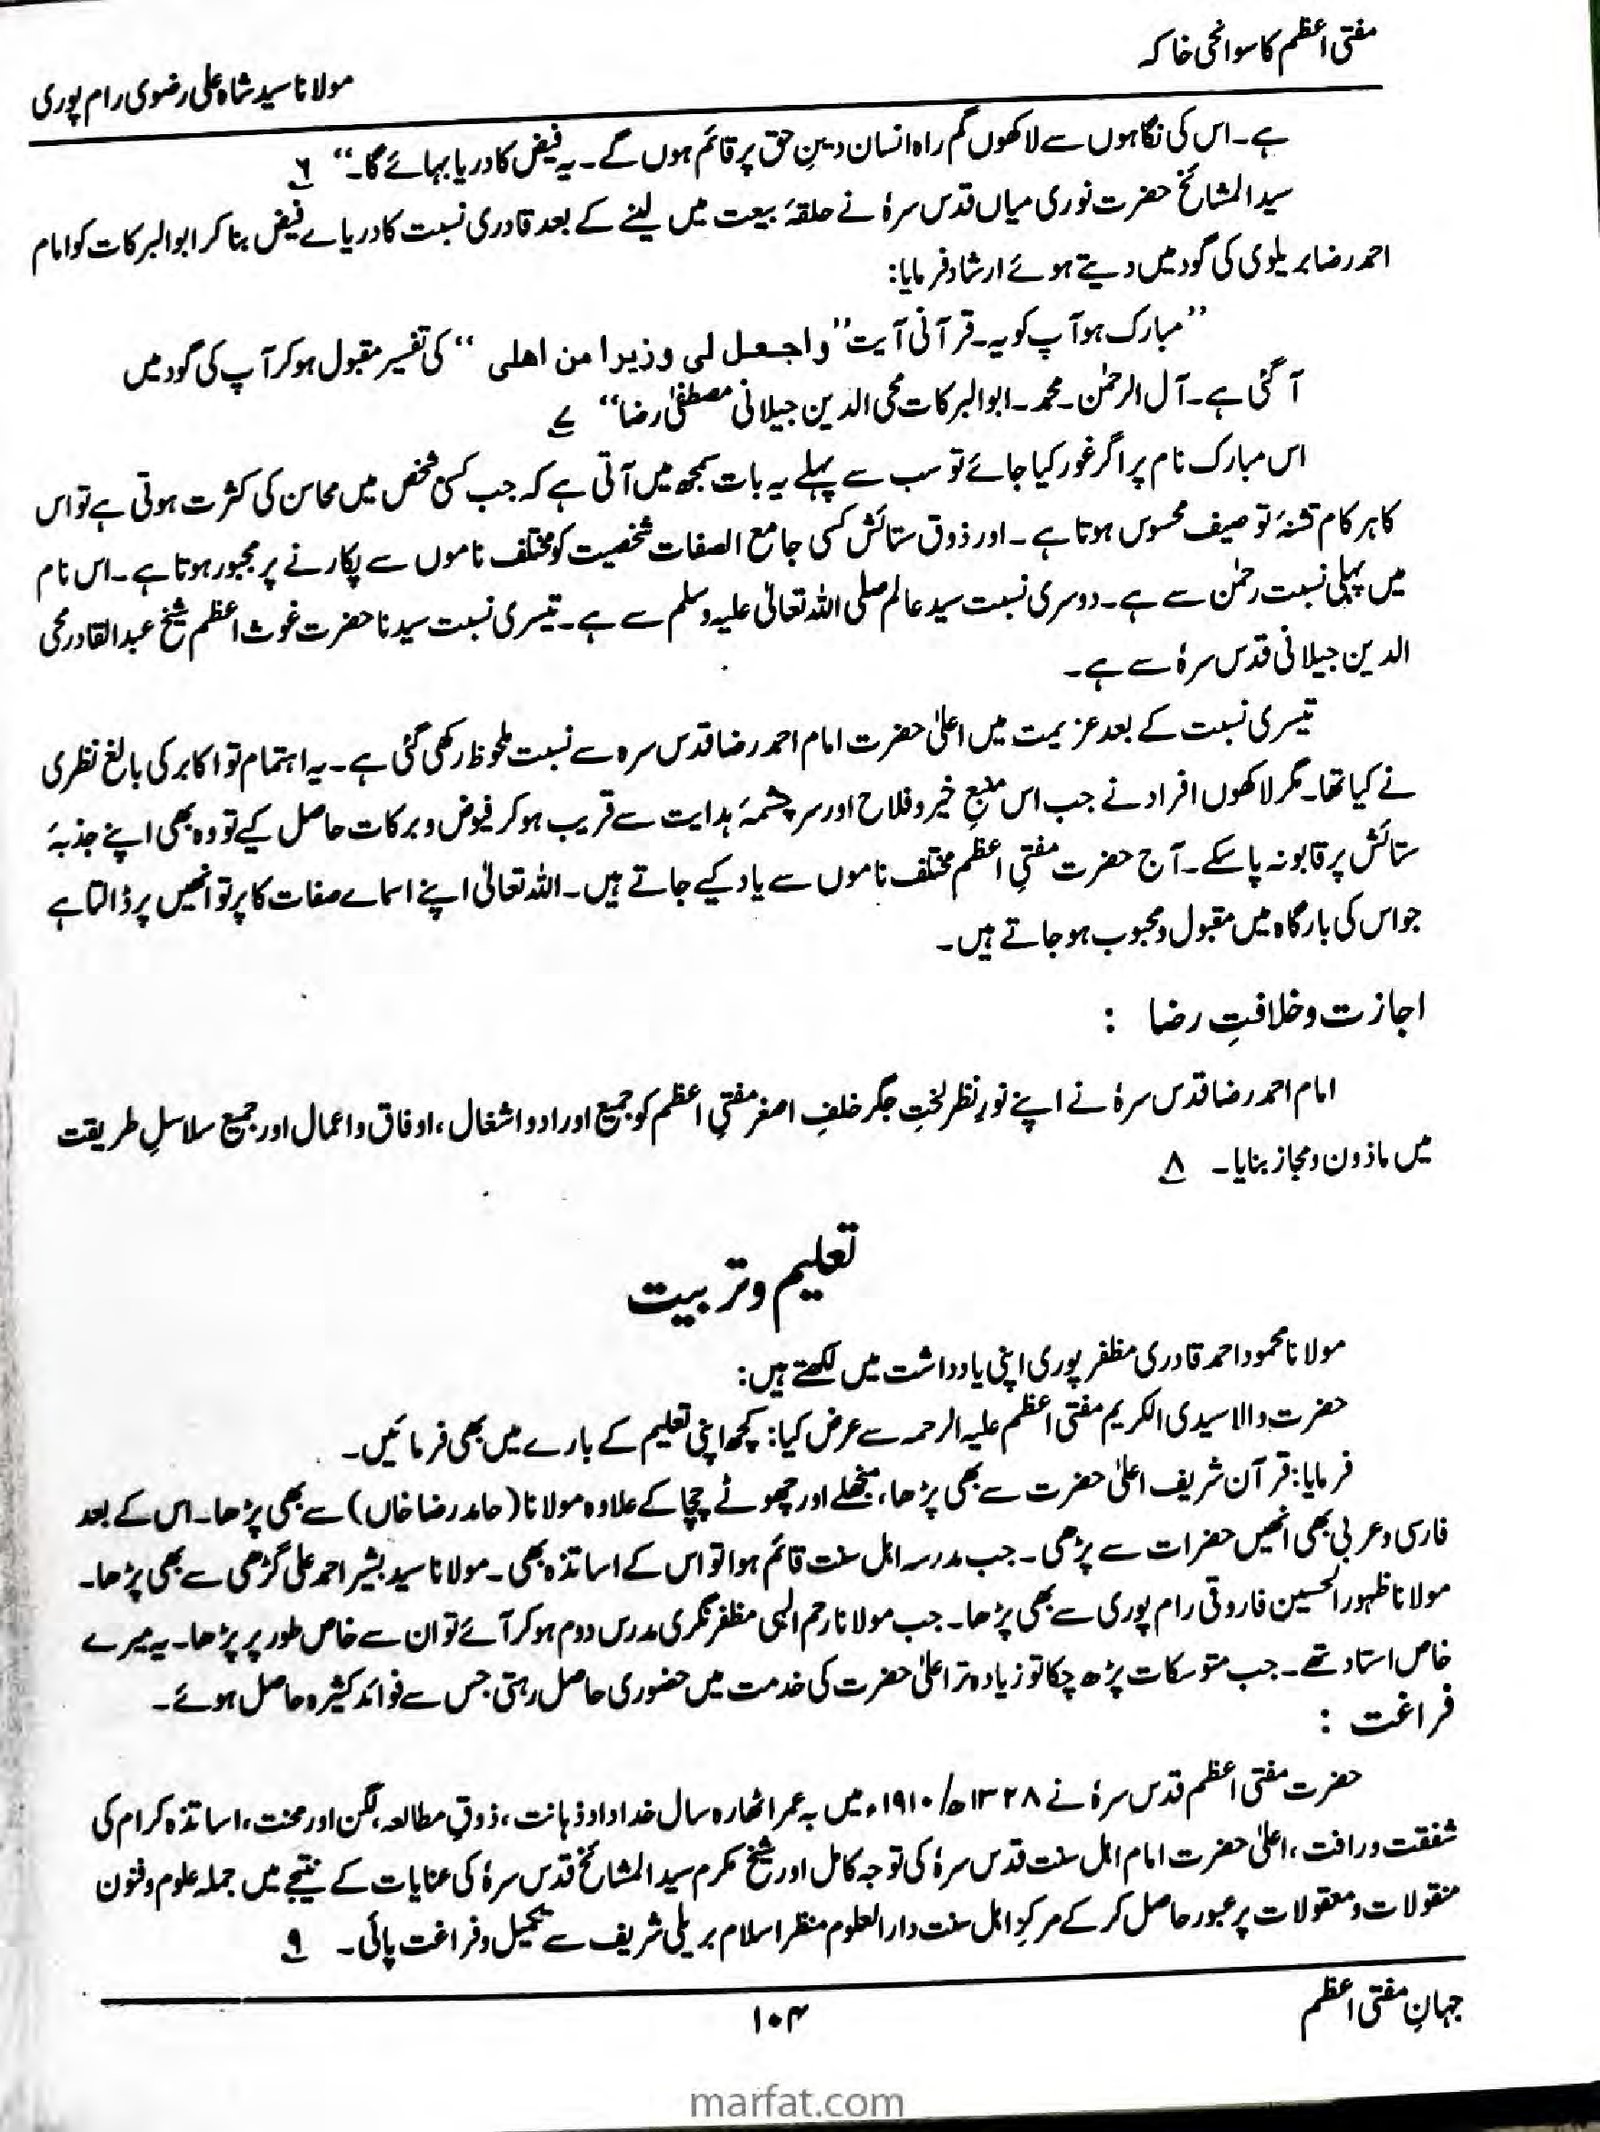 مفتی اعظم کا سوانحی خاکہ
مولانا سید شاہ علی رضوی رام پوری
ہے۔ اس کی نگاہوں سے لاکھوں گم راہ انسان دینِ حق پر قائم ہوں گے۔ یہ فیض کا دریا بہائے گا۔‘‘ ۶
سید المشائخ حضرت نوری میاں قدس سرہٗ نے حلقۂ بیعت میں لینے کے بعد قادری نسبت کا دریاے فیض بنا کر ابوالبرکات کو امام
احمد رضا بریلوی کی گود میں دیتے ہوئے ارشاد فرمایا:
’’مبارک ہو آپ کو یہ۔ قرآنی آیت ’’واجعل لی وزیرا من اھلی‘‘ کی تفسیر مقبول ہو کر آپ کی گود میں
آ گئی ہے۔ آل الرحمٰن۔ محمد۔ ابوالبرکات محی الدین جیلانی مصطفیٰ رضا‘‘ ۷
اس مبارک نام پر اگر غور کیا جائے تو سب سے پہلے یہ بات سمجھ میں آتی ہے کہ جب کسی شخص میں محاسن کی کثرت ہوتی ہے تو اس
کا ہر کام تشنۂ توصیف محسوس ہوتا ہے۔ اور ذوق ستائش کسی جامع الصفات شخصیت کو مختلف ناموں سے پکارنے پر مجبور ہوتا ہے۔ اس نام
میں پہلی نسبت رحمٰن سے ہے۔ دوسری نسبت سید عالم صلی اللہ تعالیٰ علیہ وسلم سے ہے۔ تیسری نسبت سیدنا حضرت غوث اعظم شیخ عبدالقادر محی
الدین جیلانی قدس سرہٗ سے ہے۔
تیسری نسبت کے بعد عزیمت میں اعلیٰ حضرت امام احمد رضا قدس سرہ سے نسبت ملحوظ رکھی گئی ہے۔ یہ اہتمام تو اکابر کی بالغ نظری
نے کیا تھا۔ مگر لاکھوں افراد نے جب اس منبعِ خیر و فلاح اور سرچشمۂ ہدایت سے قریب ہو کر فیوض و برکات حاصل کیے تو وہ بھی اپنے جذبۂ
ستائش پر قابو نہ پا سکے۔ آج حضرت مفتیِ اعظم مختلف ناموں سے یاد کیے جاتے ہیں۔ اللہ تعالیٰ اپنے اسماے صفات کا پرتو انھیں پر ڈالتا ہے
جو اس کی بارگاہ میں مقبول و محبوب ہو جاتے ہیں۔
اجازت و خلافتِ رضا :
امام احمد رضا قدس سرہٗ نے اپنے نورِ نظر لختِ جگر خلفِ اصغر مفتیِ اعظم کو جمیع اوراد و اشغال، اوفاق و اعمال اور جمیع سلاسلِ طریقت
میں ماذون و مجاز بنایا۔ ۸
تعلیم و تربیت
مولانا محمود احمد قادری مظفر پوری اپنی یادداشت میں لکھتے ہیں:
حضرت والا سیدی الکریم مفتی اعظم علیہ الرحمہ سے عرض کیا: کچھ اپنی تعلیم کے بارے میں بھی فرمائیں۔
فرمایا: قرآن شریف اعلیٰ حضرت سے بھی پڑھا، منجھلے اور چھوٹے چچا کے علاوہ مولانا (حامد رضا خاں) سے بھی پڑھا۔ اس کے بعد
فارسی و عربی بھی انھیں حضرات سے پڑھی۔ جب مدرسہ اہل سنت قائم ہوا تو اس کے اساتذہ بھی۔ مولانا سید بشیر احمد علی گڑھی سے بھی پڑھا۔
مولانا ظہور الحسین فاروقی رام پوری سے بھی پڑھا۔ جب مولانا رحم الٰہی مظفر نگری مدرس دوم ہو کر آئے تو ان سے خاص طور پر پڑھا۔ یہ میرے
خاص استاد تھے۔ جب متوسکات پڑھ چکا تو زیادہ تر اعلیٰ حضرت کی خدمت میں حضوری حاصل رہتی جس سے فوائد کثیرہ حاصل ہوئے۔
فراغت :
حضرت مفتی اعظم قدس سرہٗ نے ۱۳۲۸ھ/۱۹۱۰ء میں بہ عمر اٹھارہ سال خداداد ذہانت، ذوقِ مطالعہ، لگن اور محنت، اساتذہ کرام کی
شفقت و رافت، اعلیٰ حضرت امام اہل سنت قدس سرہٗ کی توجہ کامل اور شیخ مکرم سید المشائخ قدس سرہٗ کی عنایات کے نتیجے میں جملہ علوم و فنون
منقولات و معقولات پر عبور حاصل کر کے مرکزِ اہل سنت دارالعلوم منظر اسلام بریلی شریف سے تکمیل و فراغت پائی۔ ۹
جہانِ مفتی اعظم
۱۰۴
marfat.com